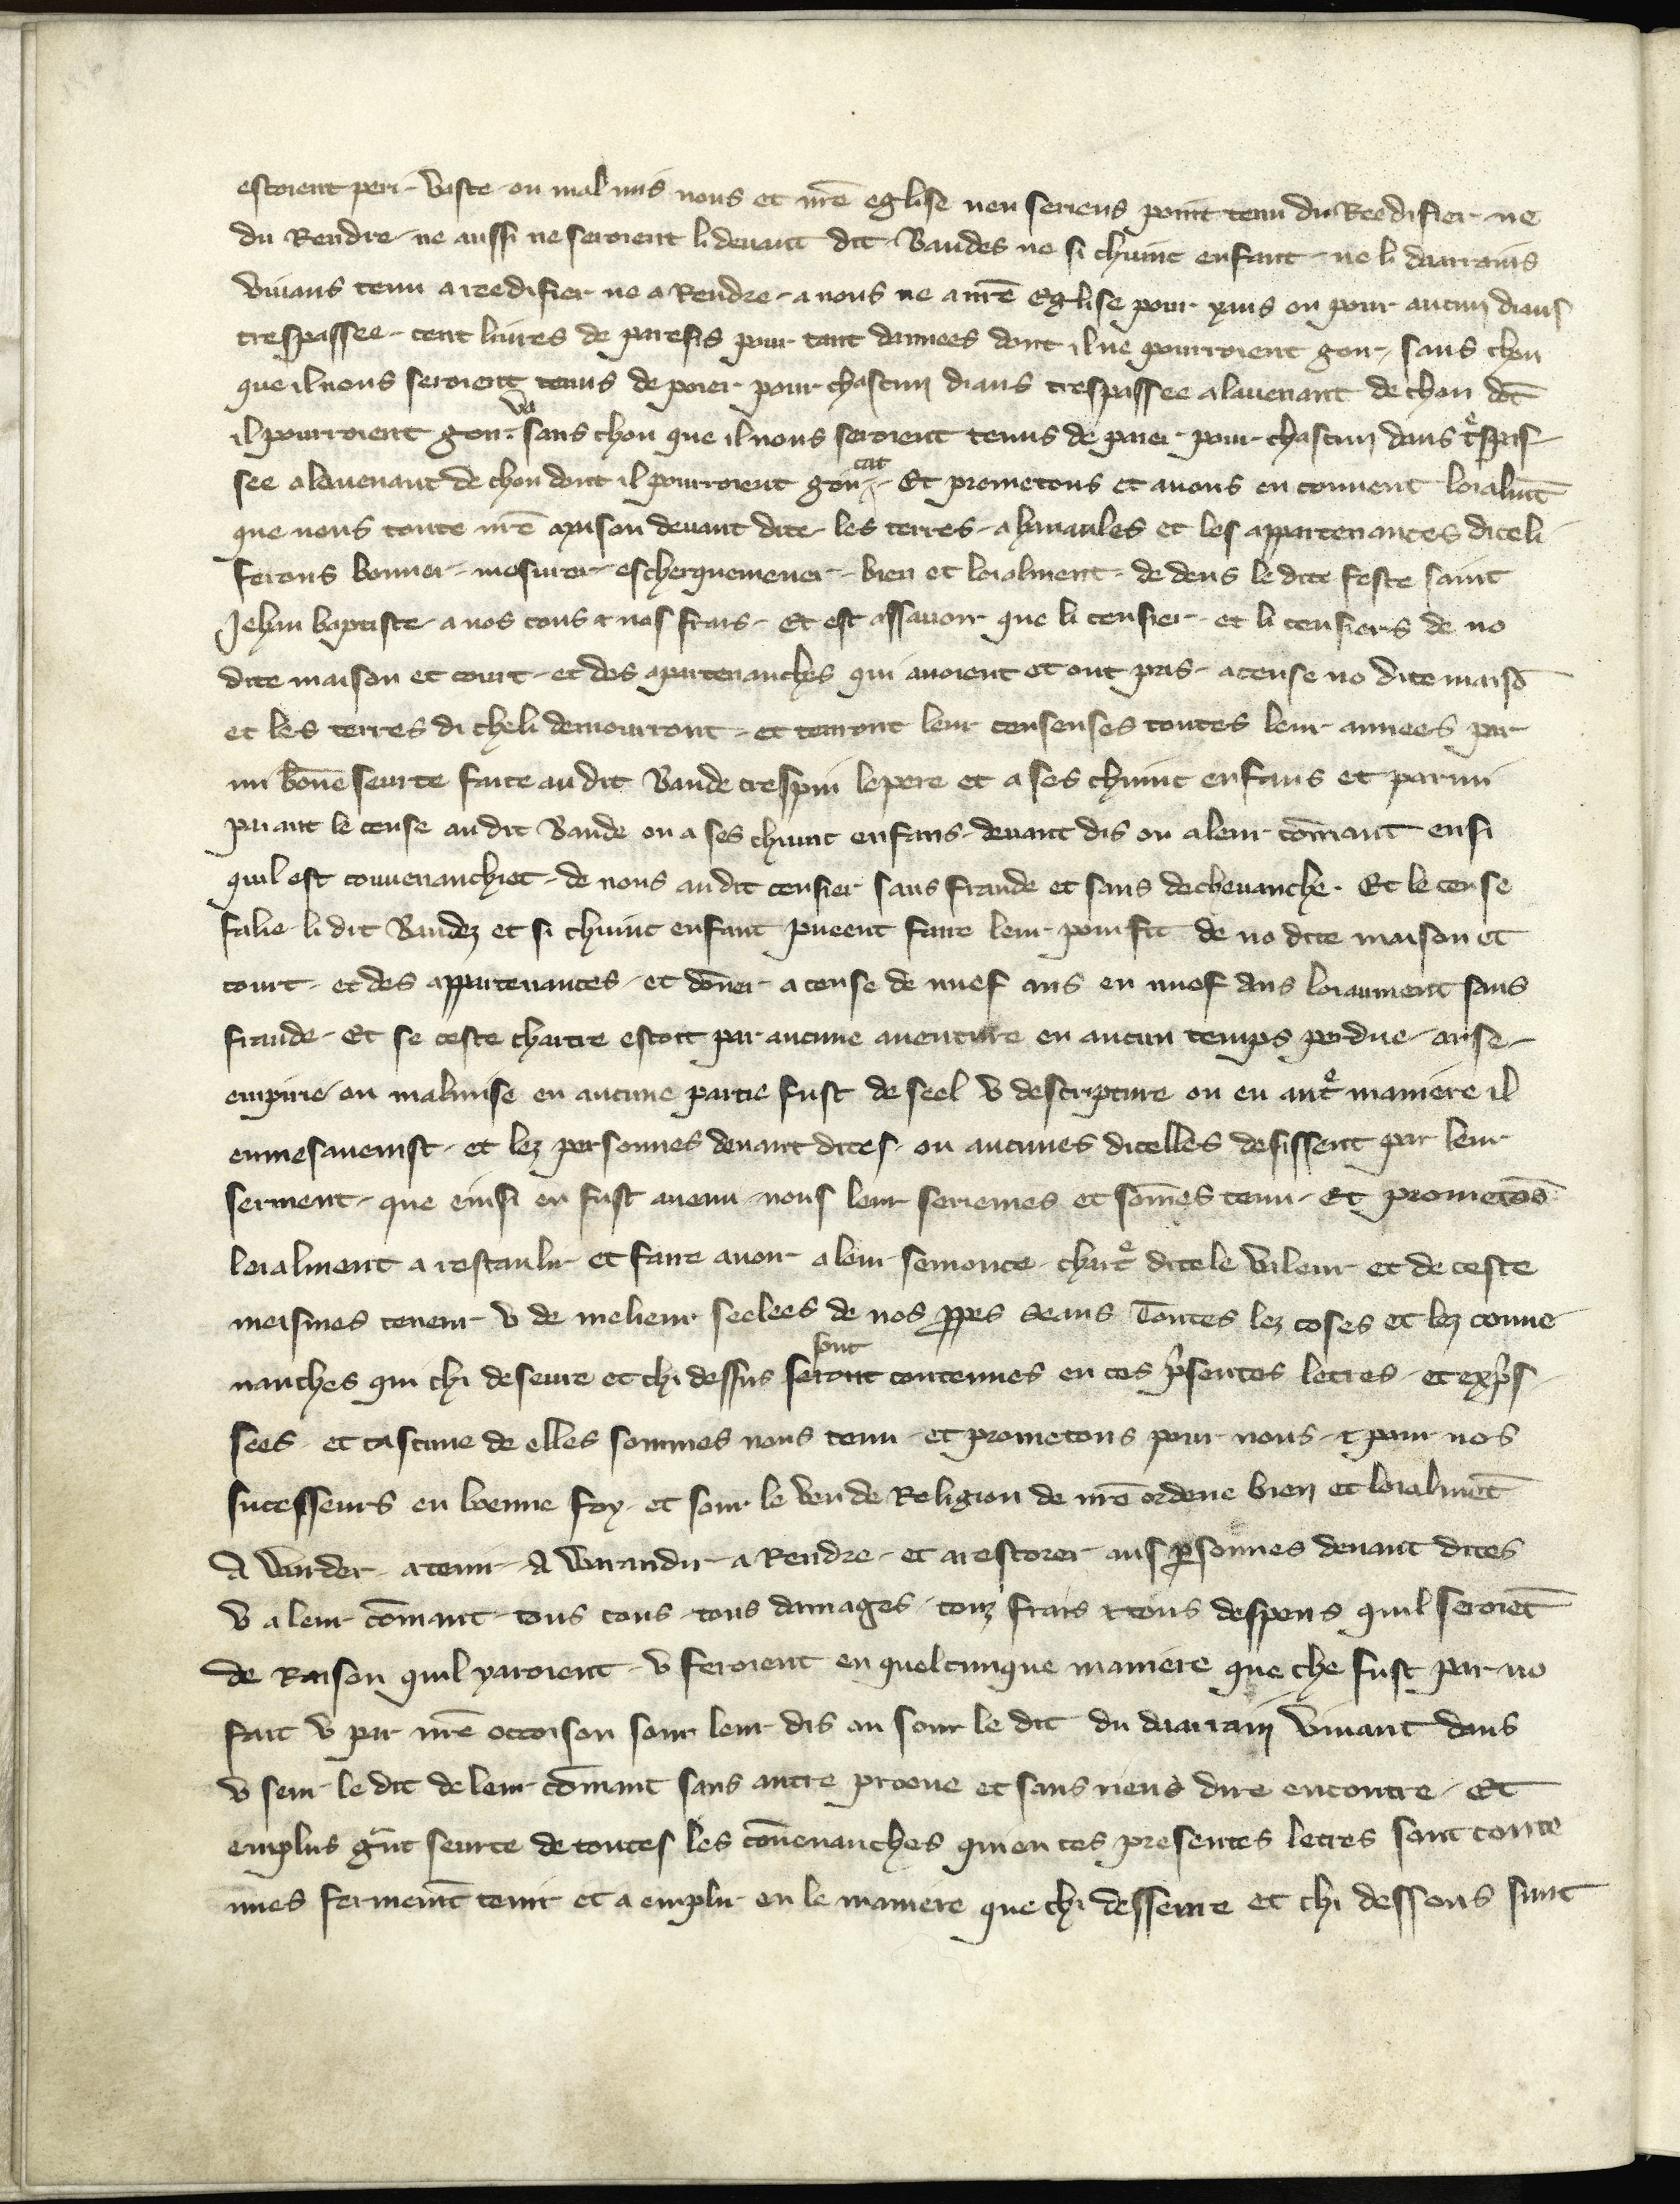 estoient peri - Vaste - ou mal mis nous et nr̄e eglise nen seriens point tenu du Reedifier - ne
du Rendre - ne aussi ne seroient li deuant dit - Baudes ne si chuinc enfant - ne li daarrains
Viuans tenu a reedifier ne a Rendre - a nous ne a nr̄e Eglise pour yaus ou pour aucun diaus
trespassee - cent liures de paresis pour tant dannees dont il ne pourroient gorr - sans chou
que il nous seroient tenus de poier pour chascun diaus trespassee a lauenant de chou dōt
il pourroient gorr . va sans chou que il nous seroient tenus de paier pour chascun daus t͛spas-
see a lauenant de chou dont il pourroient gorr cat - Et prometons et auons en conuent loialmt̄
que nous toute nr̄e maison deuant dite - les terres - ahanaules et les appartenances diceli
ferons bonner - mesurer - escherquemener - bien et loialment - de dens le dite feste saint
Jehan baptiste - a nos cous ⁊ nos frais - Et est assauoir que li censier - et li censiers de no
dite maison et court - et des apartenanches qui auoient et ont pris - a cense no dite maisō
et les terres di cheli demourront - et tenront leur censenses toutes leur annees par
mi bōne seurte faite au dit Baude crespin le pere et a ses chuinc enfans et parmi
paiant le cense au dit Baude ou a ses chuinc enfans - deuant dis ou a leur cōmant ensi
quil est conuenanchiet - de nous au dit censier sans fraude et sans decheuanche . Et le cense
falie - li dit Baudez et si chuinc enfant pueent faire leur pourfit de no dite maison et
court - et des appartenances - et dōner a cense de nuef ans en nuef ans loiaument sans
fraude - Et se ceste chartre estoit par aucune auenture en aucun temps perdue - arse -
empirie ou malmise en aucune partie fust de seel v descripture ou en aut͛ maniere il
enmesauenist - et lez personnes deuant dites - ou aucunes dicelles desissent par leur
serment - que einsi en fust auenu nous leur seriemes et som̄es tenu - Et prometōs
loialment a restaulir et faire auoir a leur semonce - chart͛ ditele Valeur et de ceste
meismes teneur v de melieur seelees de nos ꝓpres seaus Toutes lez coses et lez conue-
nanches qui chi deseure et chi dessus seront sont contenues en ces p̄sentes letres - et exp̄s-
sees - et cascune de elles sommes nous tenu - et prometons pour nous - ⁊ pour nos
successeurs en boenne foy - et sour le veu de Religion de nr̄e ordene bien et loialmēt
A Warder - a tenir - A Warandir - a Rendre - et a restorer - aus ꝑsonnes deuant dites
v a leur cōmant - tous cous - tous damages - touz frais ⁊ tous despens quil seroiēt
de Raison quil yaroient - v feroient en quelcunque maniere que che fust par no
fait v par nr̄e occoison sour leur dis ou sour le dit du daarrain Viuant daus
v seur le dit de leur cōmant sans autre prœue et sans riens dire encontre - Et
emplus gn̄t seurte de toutes les cōuenanches qui en ces presentes letres sont conte
nues fermemt̄ tenir et a emplir en le maniere que chi desseure et chi dessous sunt